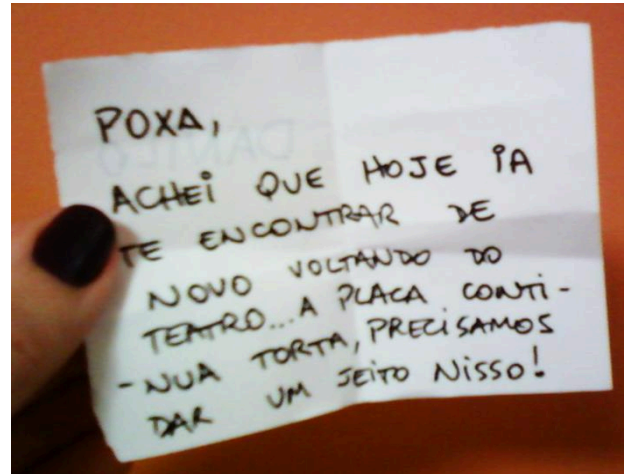 POXA,
ACHEI QUE HOJE IA
TE ENCONTRAR DE
NOVO VOLTANDO DO
TEATRO... A PLACA CONTI-
-NUA TORTA, PRECISAMOS
DAR UM JEITO NISSO!
DANILO